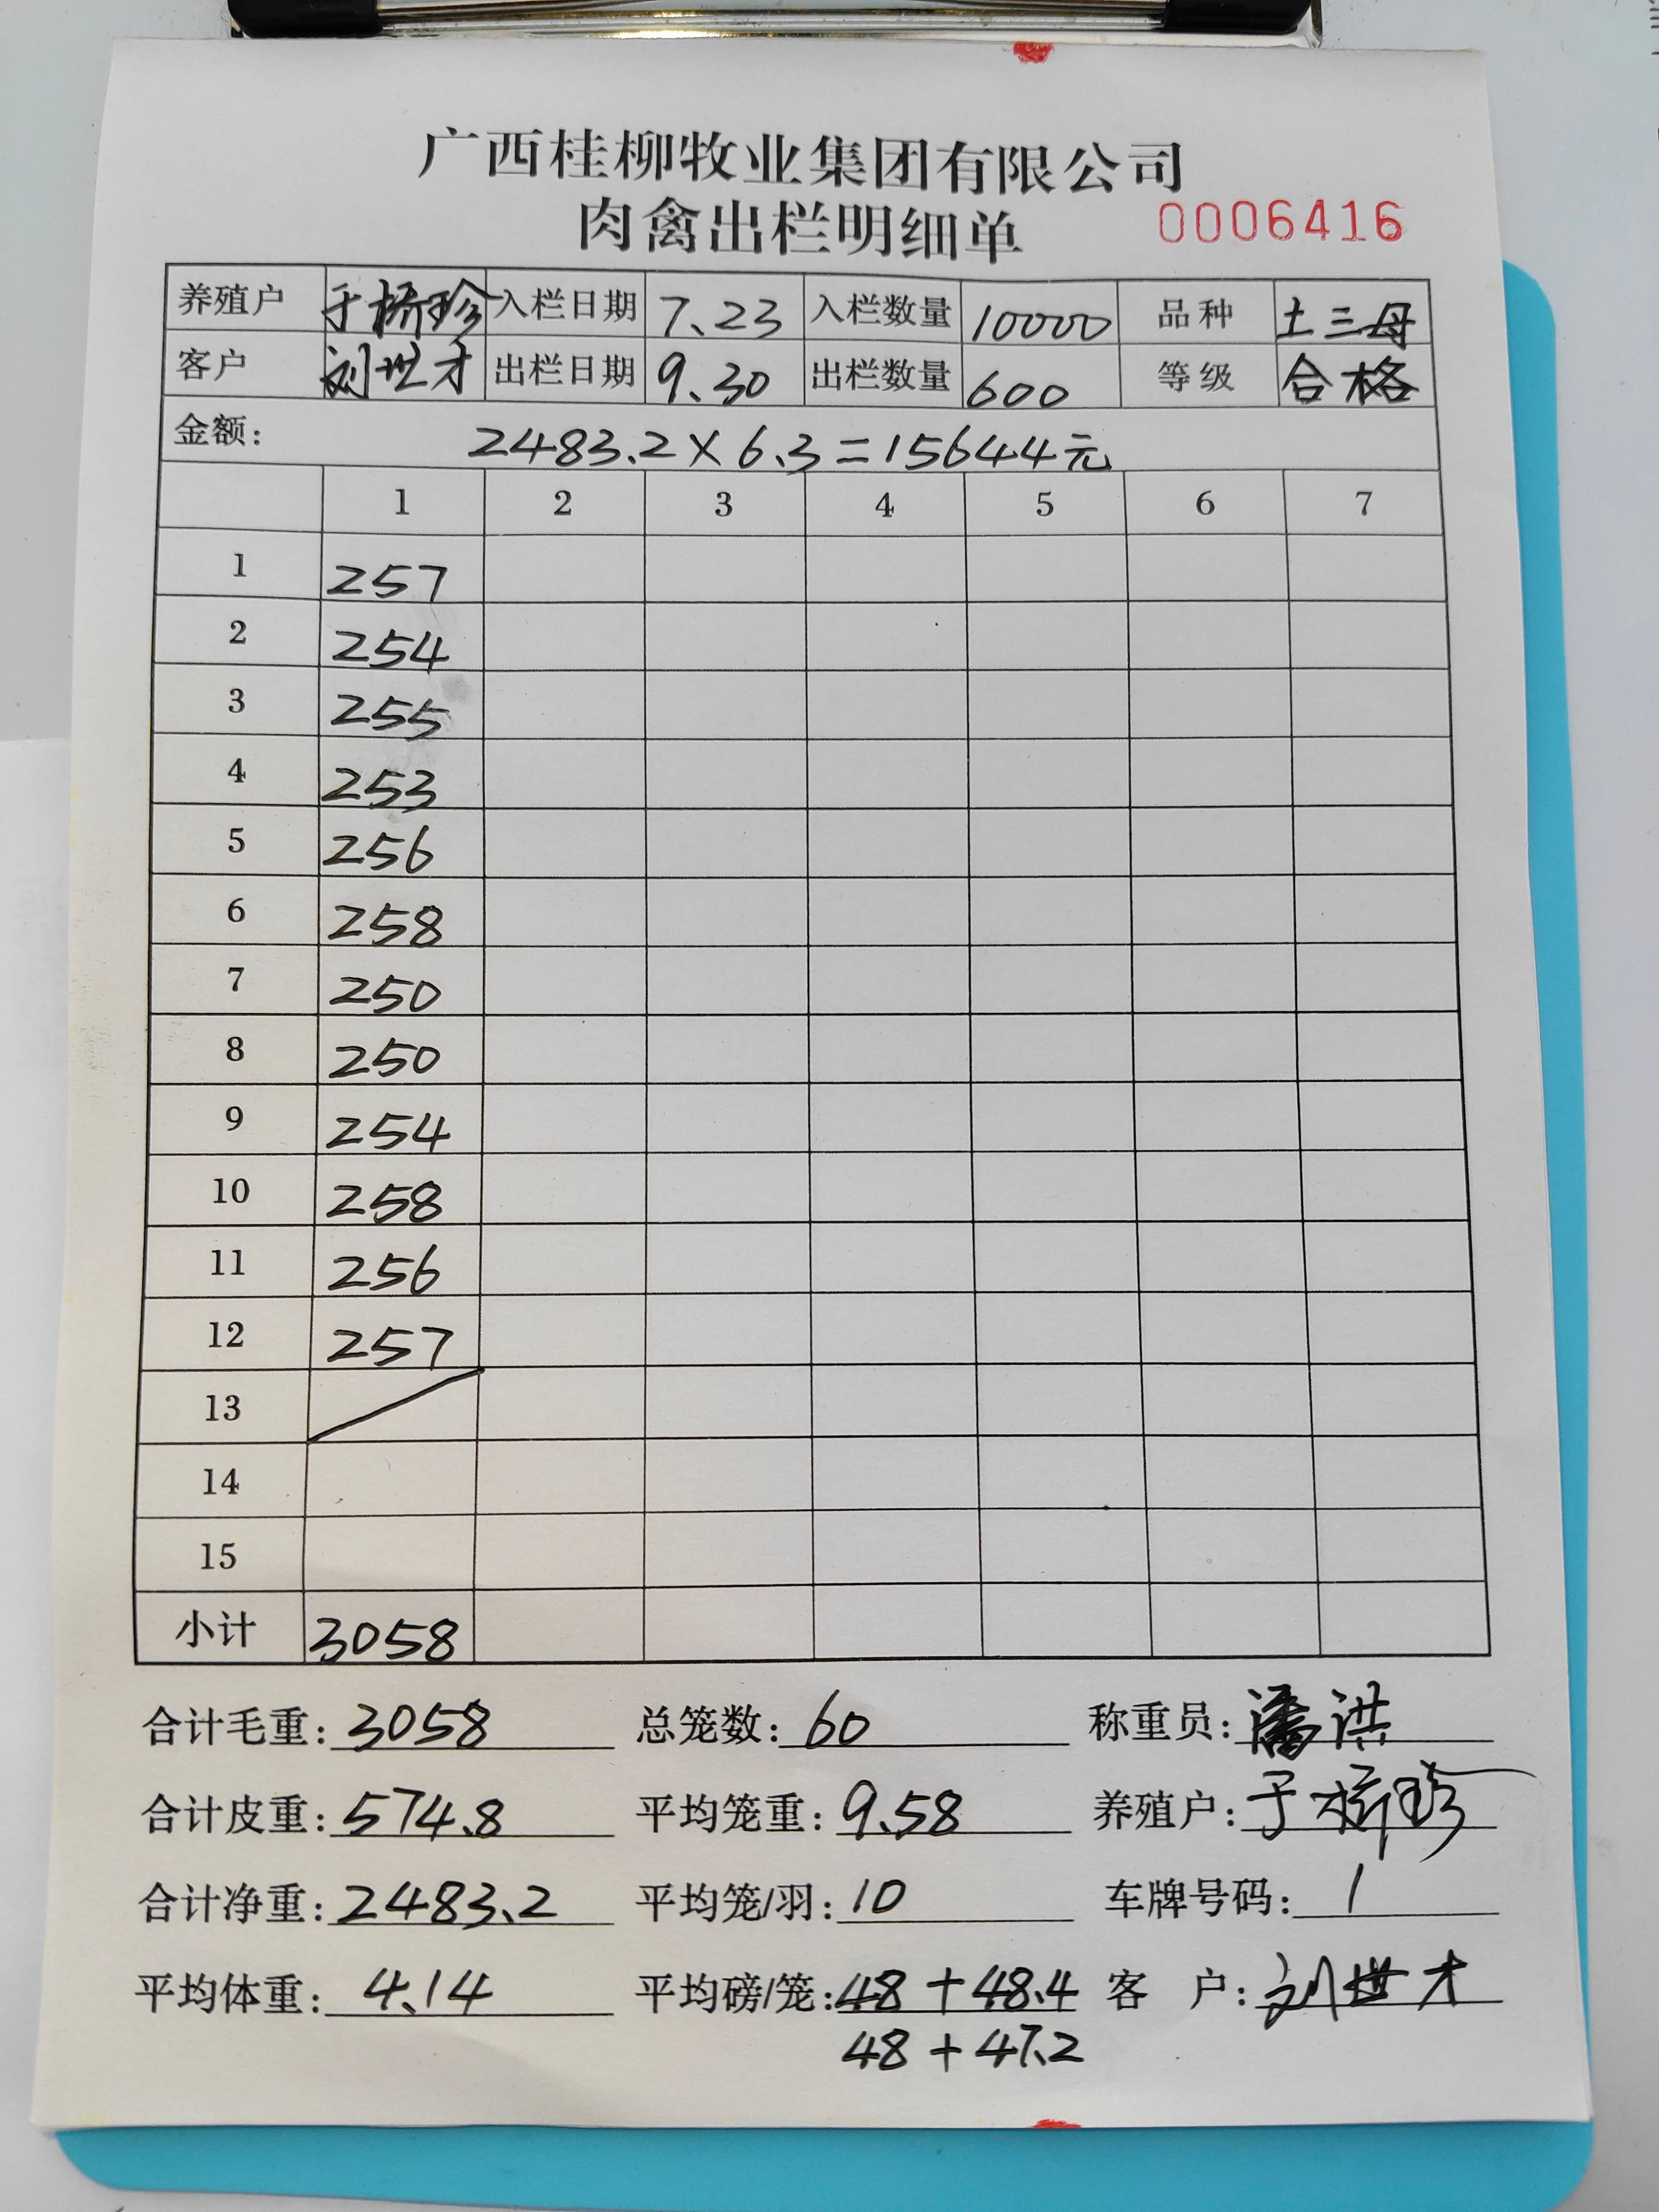 广西桂柳牧业集团有限公司
肉禽出栏明细单 0006416
养殖户 于桥珍 入栏日期 7.23 入栏数量 10000 品种 土三母
客户 刘世才 出栏日期 9.30 出栏数量 600 等级 合格
金额: 2483.2×6.3=15644元
1 2 3 4 5 6 7
1 257
2 254
3 255
4 253
5 256
6 258
7 250
8 250
9 254
10 258
11 256
12 257
13
14
15
小计 3058
合计毛重: 3058 总笼数: 60 称重员: 潘洪
合计皮重: 574.8 平均笼重: 9.58 养殖户: 于桥珍
合计净重: 2483.2 平均笼/羽: 10 车牌号码: 1
平均体重: 4.14 平均磅/笼: 48+48.4 客户: 刘世才
48+47.2